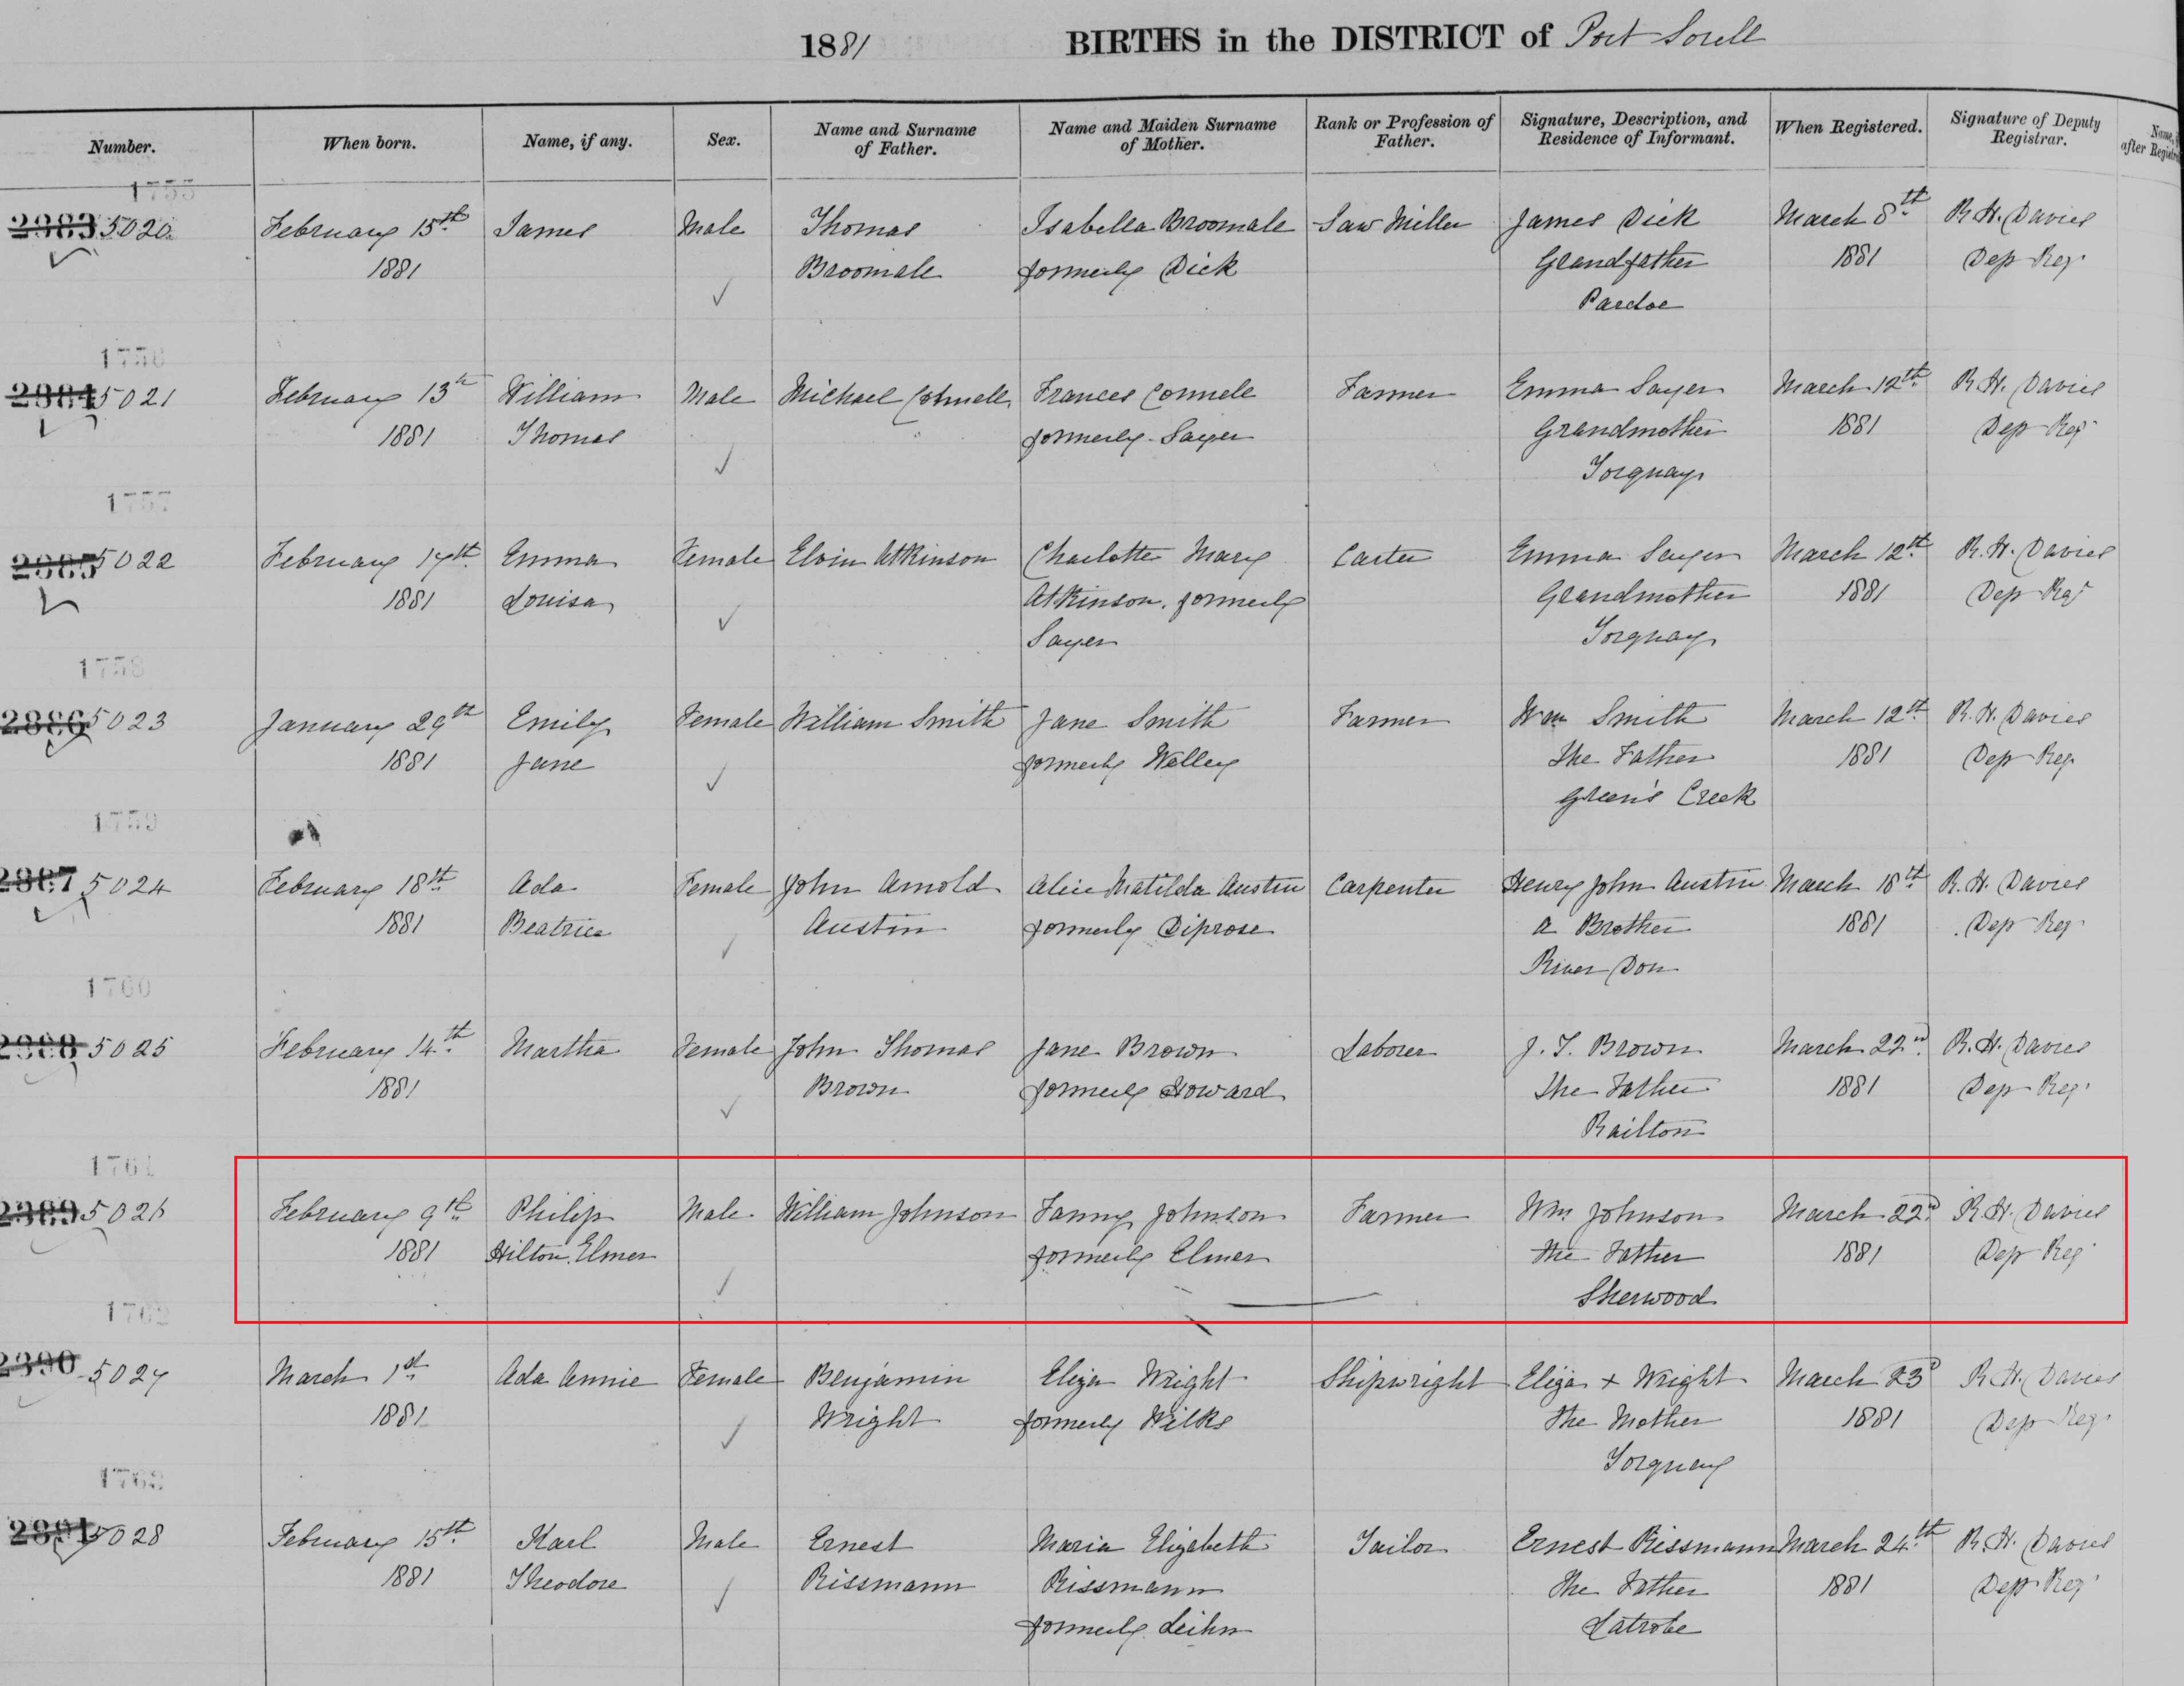 1881 BIRTHS in the DISTRICT of Port Sorell
Number. When born. Name, if any. Sex. Name and Surname of Father. Name and Maiden Surname of Mother. Rank or Profession of Father. Signature, Description, and Residence of Informant. When Registered. Signature of Deputy Registrar. Name, after
1755
2383 5020 February 15th James Male Thomas Isabella Broomale Saw Miller James Dick March 8th R. H. Davies
1881 Broomale formerly Dick Grandfather 1881 Dep Reg
Pardoe
1756
2384 5021 February 13th William Male Michael Connell Frances Connell Farmer Emma Sayer March 12th R. H. Davies
1881 Thomas formerly Sayer Grandmother 1881 Dep Reg
Torquay
1757
2385 5022 February 17th Emma Female Elvin Atkinson Charlotte Mary Carter Emma Sayer March 12th R. H. Davies
1881 Louisa Atkinson, formerly Grandmother 1881 Dep Reg
Sayer Torquay
1758
2386 5023 January 29th Emily Female William Smith Jane Smith Farmer Wm Smith March 12th R. H. Davies
1881 Jane formerly Welley the Father 1881 Dep Reg
Green's Creek
1759
2387 5024 February 18th Ada Female John Arnold Alice Matilda Austin Carpenter Henry John Austin March 18th R. H. Davies
1881 Beatrice Austin formerly Diprose a Brother 1881 Dep Reg
River Don
1760
2388 5025 February 14th Martha Female John Thomas Jane Brown Laborer J. T. Brown March 22nd R. H. Davies
1881 Brown formerly Howard the Father 1881 Dep Reg
Railton
1761
2389 5026 February 9th Philip Male William Johnson Fanny Johnson Farmer Wm Johnson March 22nd R. H. Davies
1881 Hilton Elmer formerly Elmer the Father 1881 Dep Reg
Sherwood
1762
2390 5027 March 1st Ada Annie Female Benjamin Eliza Wright Shipwright Eliza x Wright March 23d R. H. Davies
1881 Wright formerly Wilks the Mother 1881 Dep Reg
Torquay
1763
2391 5028 February 15th Karl Male Ernest Maria Elizabeth Tailor Ernest Rissmann March 24th R. H. Davies
1881 Theodore Rissmann Rissmann the Father 1881 Dep Reg
formerly Leihn Latrobe